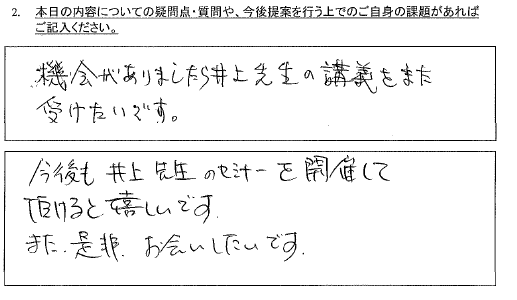 2. 本日の内容についての疑問点・質問や、今後提案を行う上でのご自身の課題があれば
ご記入ください。
機会がありましたら井上先生の講義をまた
受けたいです。
今後も井上先生のセミナーを開催して
頂けると嬉しいです。
また、是非、お会いしたいです。